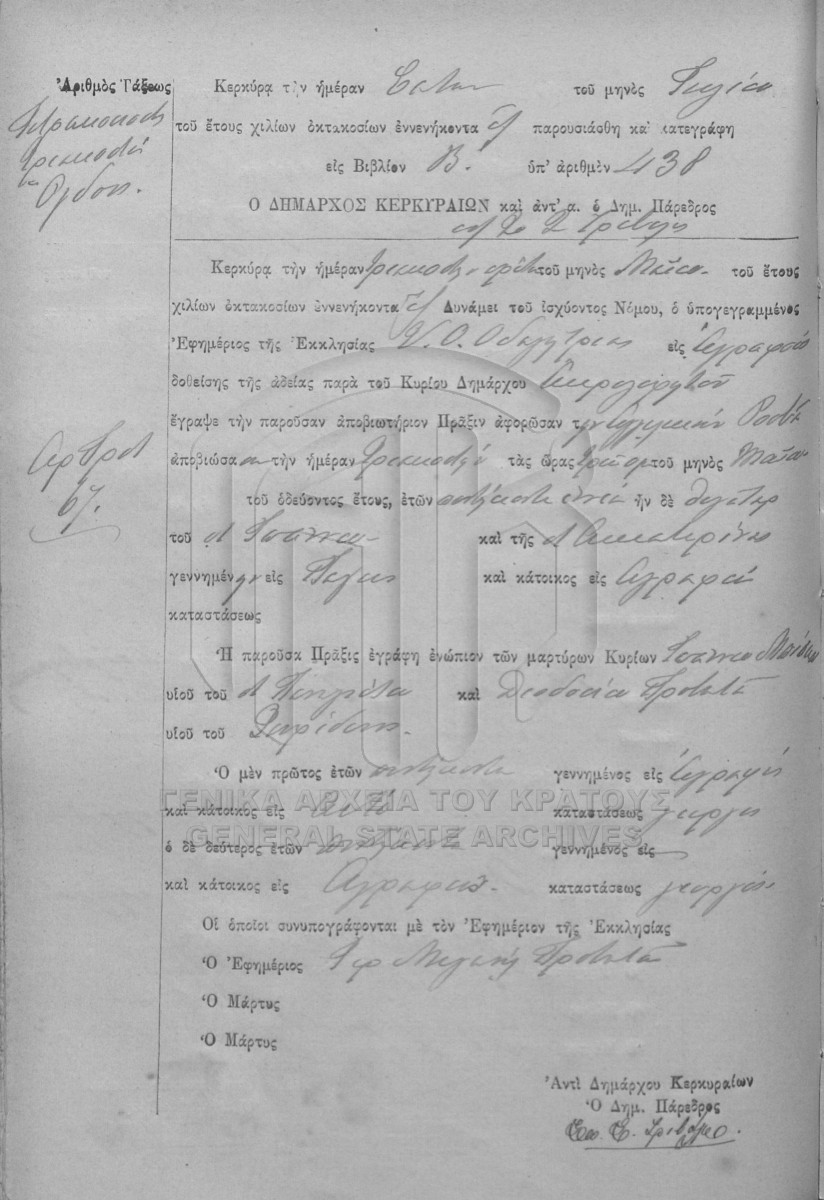 Ἀριθμὸς Τάξεως
Τετρακοσιοστὴ
τριακοστὴ
Ὀγδόη.
Κερκύρᾳ τὴν ἡμέραν Ἕκτην τοῦ μηνὸς Ἰουλίου
τοῦ ἔτους χιλίων ὀκτακοσίων ἐννενήκοντα ἓξ παρουσιάσθη καὶ κατεγράφη
εἰς Βιβλίον Β. ὑπ' ἀριθμὸν 438
Ο ΔΗΜΑΡΧΟΣ ΚΕΡΚΥΡΑΙΩΝ καὶ ἀντ' α. ὁ Δημ. Πάρεδρος
Κερκύρᾳ τὴν ἡμέραν τριακοστὴν πρώτην τοῦ μηνὸς Μαΐου τοῦ ἔτους
χιλίων ὀκτακοσίων ἐννενήκοντα ἓξ Δυνάμει τοῦ ἰσχύοντος Νόμου, ὁ ὑπογεγραμμένος
Ἐφημέριος τῆς Ἐκκλησίας Υ. Θ. Οδηγητρίας εἰς Ἀγραφοὺς
δοθείσης τῆς ἀδείας παρὰ τοῦ Κυρίου Δημάρχου
ἔγραψε τὴν παροῦσαν ἀποβιωτήριον Πρᾶξιν ἀφορῶσαν τὴν
ἀποβιώσασαν τὴν ἡμέραν τριακοστὴν τὰς ὥρας τοῦ μηνὸς Μαΐου
τοῦ ὁδεύοντος ἔτους, ἐτῶν ἑξήκοντα ἐννέα ἦν δὲ θυγάτηρ
τοῦ π Ἰωάννου καὶ τῆς π Αικατερίνης
γεννημένην εἰς καὶ κάτοικος εἰς Αγραφοὺς
καταστάσεως
Ἡ παροῦσα Πρᾶξις ἐγράφη ἐνώπιον τῶν μαρτύρων Κυρίων Ἰωάννου
υἱοῦ τοῦ π Παναγιώτου καὶ Θεοδοσίου Προβατᾶ
υἱοῦ τοῦ Σπυρίδωνος
Ὁ μὲν πρῶτος ἐτῶν πεντήκοντα γεννημένος εἰς Ἀγραφοὺς
καὶ κάτοικος εἰς αὐτό καταστάσεως γεωργός
ὁ δὲ δεύτερος ἐτῶν γεννημένος εἰς
καὶ κάτοικος εἰς Αγραφοὺς καταστάσεως γεωργός
Οἱ ὁποῖοι συνυπογράφονται μὲ τὸν Ἐφημέριον τῆς Ἐκκλησίας
Ὁ Ἐφημέριος Ἱερ Προβατᾶς
Ὁ Μάρτυς
Ὁ Μάρτυς
Ἀντὶ Δημάρχου Κερκυραίων
Ὁ Δημ. Πάρεδρος
Αριθ
67.
ΓΕΝΙΚΑ ΑΡΧΕΙΑ ΤΟΥ ΚΡΑΤΟΥΣ
GENERAL STATE ARCHIVES